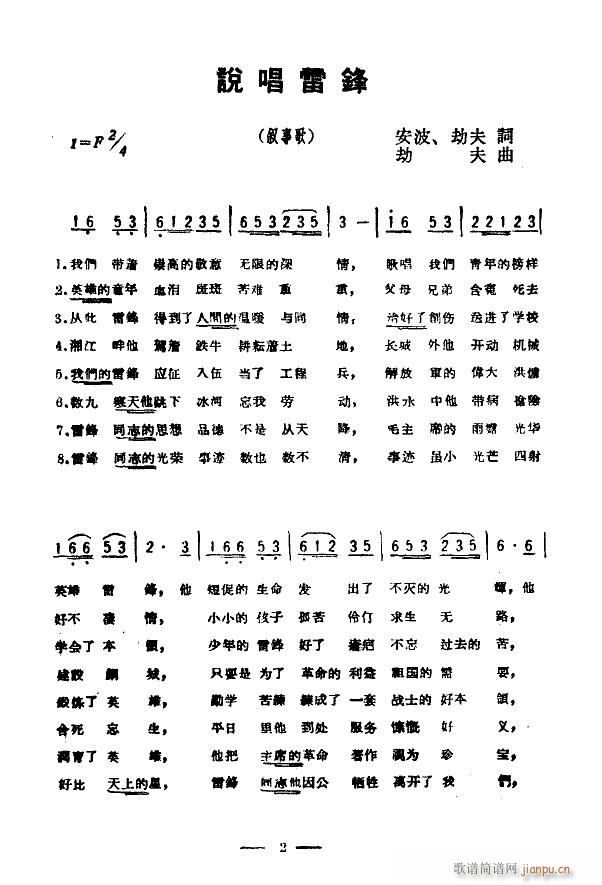 說唱雷鋒
1=F 2/4
(敘事歌)
安波、劫夫 詞
劫 夫 曲
1 6 5 3 | 6 1 2 3 5 | 6 5 3 2 3 5 | 3 — | i 6 5 3 | 2 2 1 2 3 |
1.我們 带着 崇高的敬意 无限的深 情， 歌唱 我們 青年的榜样
2.英雄的童年 血泪 斑斑 苦难 重 重， 父母 兄弟 含寃 死去
3.从此 雷鋒 得到了人間的温暖 与同 情， 治好了創伤 送进了学校
4.湘江 畔他 駕着 鉄牛 耕耘着土 地， 长城 外他 开动 机械
5.我們的雷鋒 应征 入伍 当了 工程 兵， 解放 軍的 偉大 洪爐
6.数九 寒天他跳下 冰河 忘我 劳 动， 洪水 中他 带病 搶險
7.雷鋒 同志的思想 品德 不是 从天 降， 毛主 席的 雨露 光华
8.雷鋒 同志的光荣 事迹 数也 数不 清， 事迹 虽小 光芒 四射
1 6 6 5 3 | 2 · 3 | 1 6 6 5 3 | 6 1 2 3 5 | 6 5 3 2 3 5 | 6 · 6 |
英雄 雷 鋒，他 短促的生命 发 出了 不灭的 光 輝，他
好不 凄 情， 小小的 孩子 孤苦 伶仃 求生 无 路，
学会了 本 領， 少年的 雷鋒 好了 瘡疤 不忘 过去的 苦，
建設 鋼 城， 只要是 为了 革命的 利益 祖国的 需 要，
鍛炼了 英 雄， 勤学 苦練 練成了 一套 战士的 好本 領，
舍死 忘 生， 平日 里他 到处 服务 慷慨 好 义，
潤育了 英 雄， 他把 主席的革命 著作 視为 珍 宝，
好比 天上的星， 雷鋒 同志他因公 牺牲 离开了 我 們，
— 2 —
歌谱简谱网
jianpu.cn